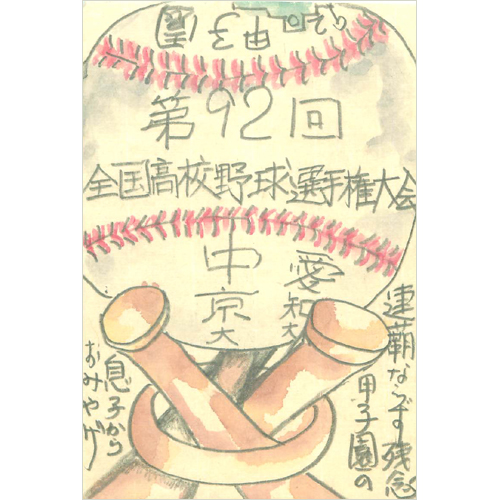 甲子園
第92回
全国高校野球選手権大会
愛知大
中京大
連覇ならず残念
甲子園の
息子から
おみやげ